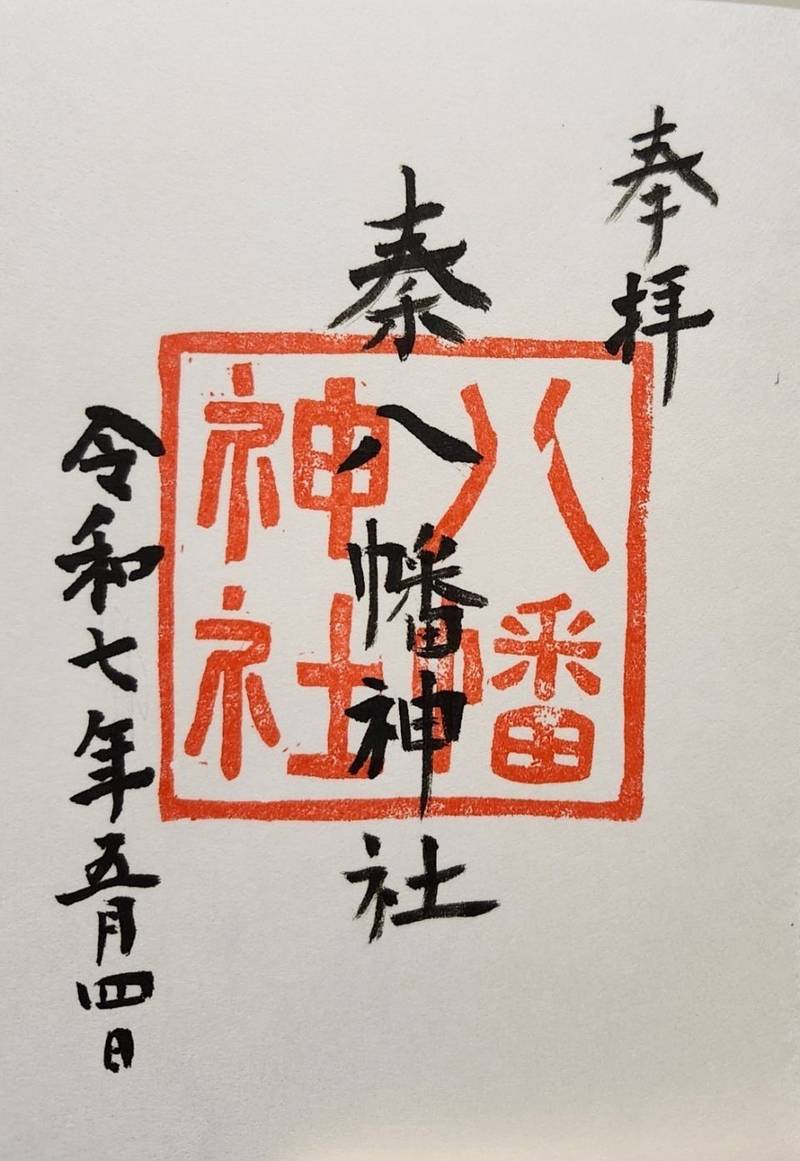 奉拝
秦八幡神社
八幡
神社
令和七年五月四日